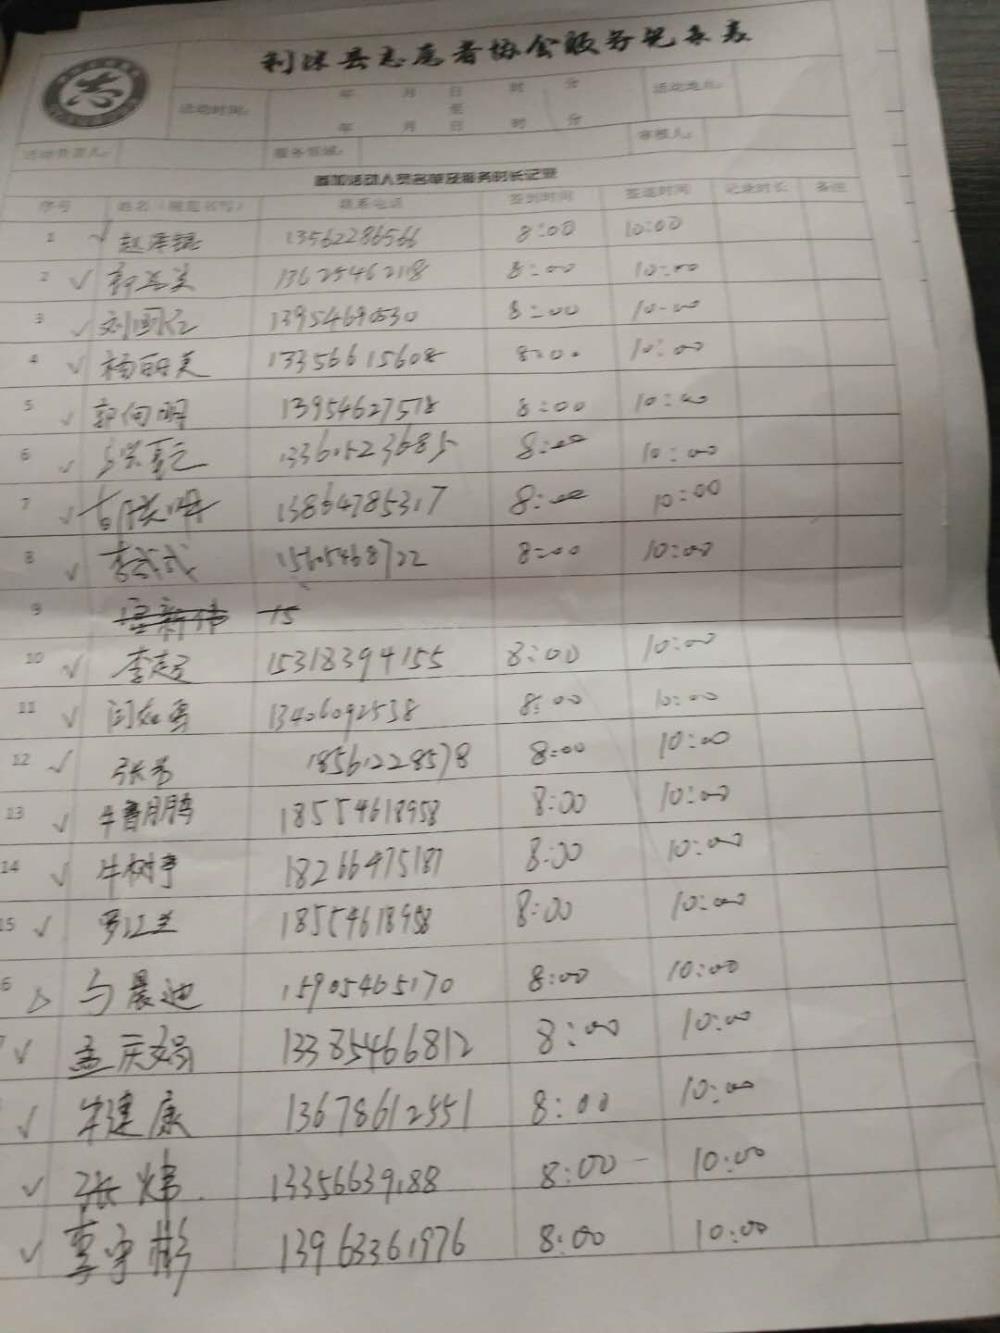 利津县志愿者协会服务记录表
志
活动时间: 年 月 日 时 分
至
年 月 日 时 分
活动地点:
活动负责人: 服务领域: 审核人:
参加活动人员名单及服务时长记录
序号 姓名(规范书写) 联系电话 签到时间 签退时间 记录时长 备注
1 √ 赵泽锟 13562286566 8:00 10:00
2 √ 13625462118 8:00 10:00
3 √ 刘国红 13954690530 8:00 10:00
4 √ 杨丽美 13356615608 8:00 10:00
5 √ 郭向明 13954627518 8:00 10:00
6 √ 13361523685 8:00 10:00
7 √ 13864785317 8:00 10:00
8 √ 李武武 15605468722 8:00 10:00
9 15
10 √ 李超 15318394155 8:00 10:00
11 √ 13406092538 8:00 10:00
12 √ 张 18561228578 8:00 10:00
13 √ 牛鲁鹏 18554618958 8:00 10:00
14 √ 牛树亭 18266475187 8:00 10:00
15 √ 18554618958 8:00 10:00
6 △ 马晨迪 15905465170 8:00 10:00
√ 孟庆娟 13385466812 8:00 10:00
√ 牛建康 13678612551 8:00 10:00
√ 张炜 13356639188 8:00 10:00
√ 李守彬 13963361976 8:00 10:00